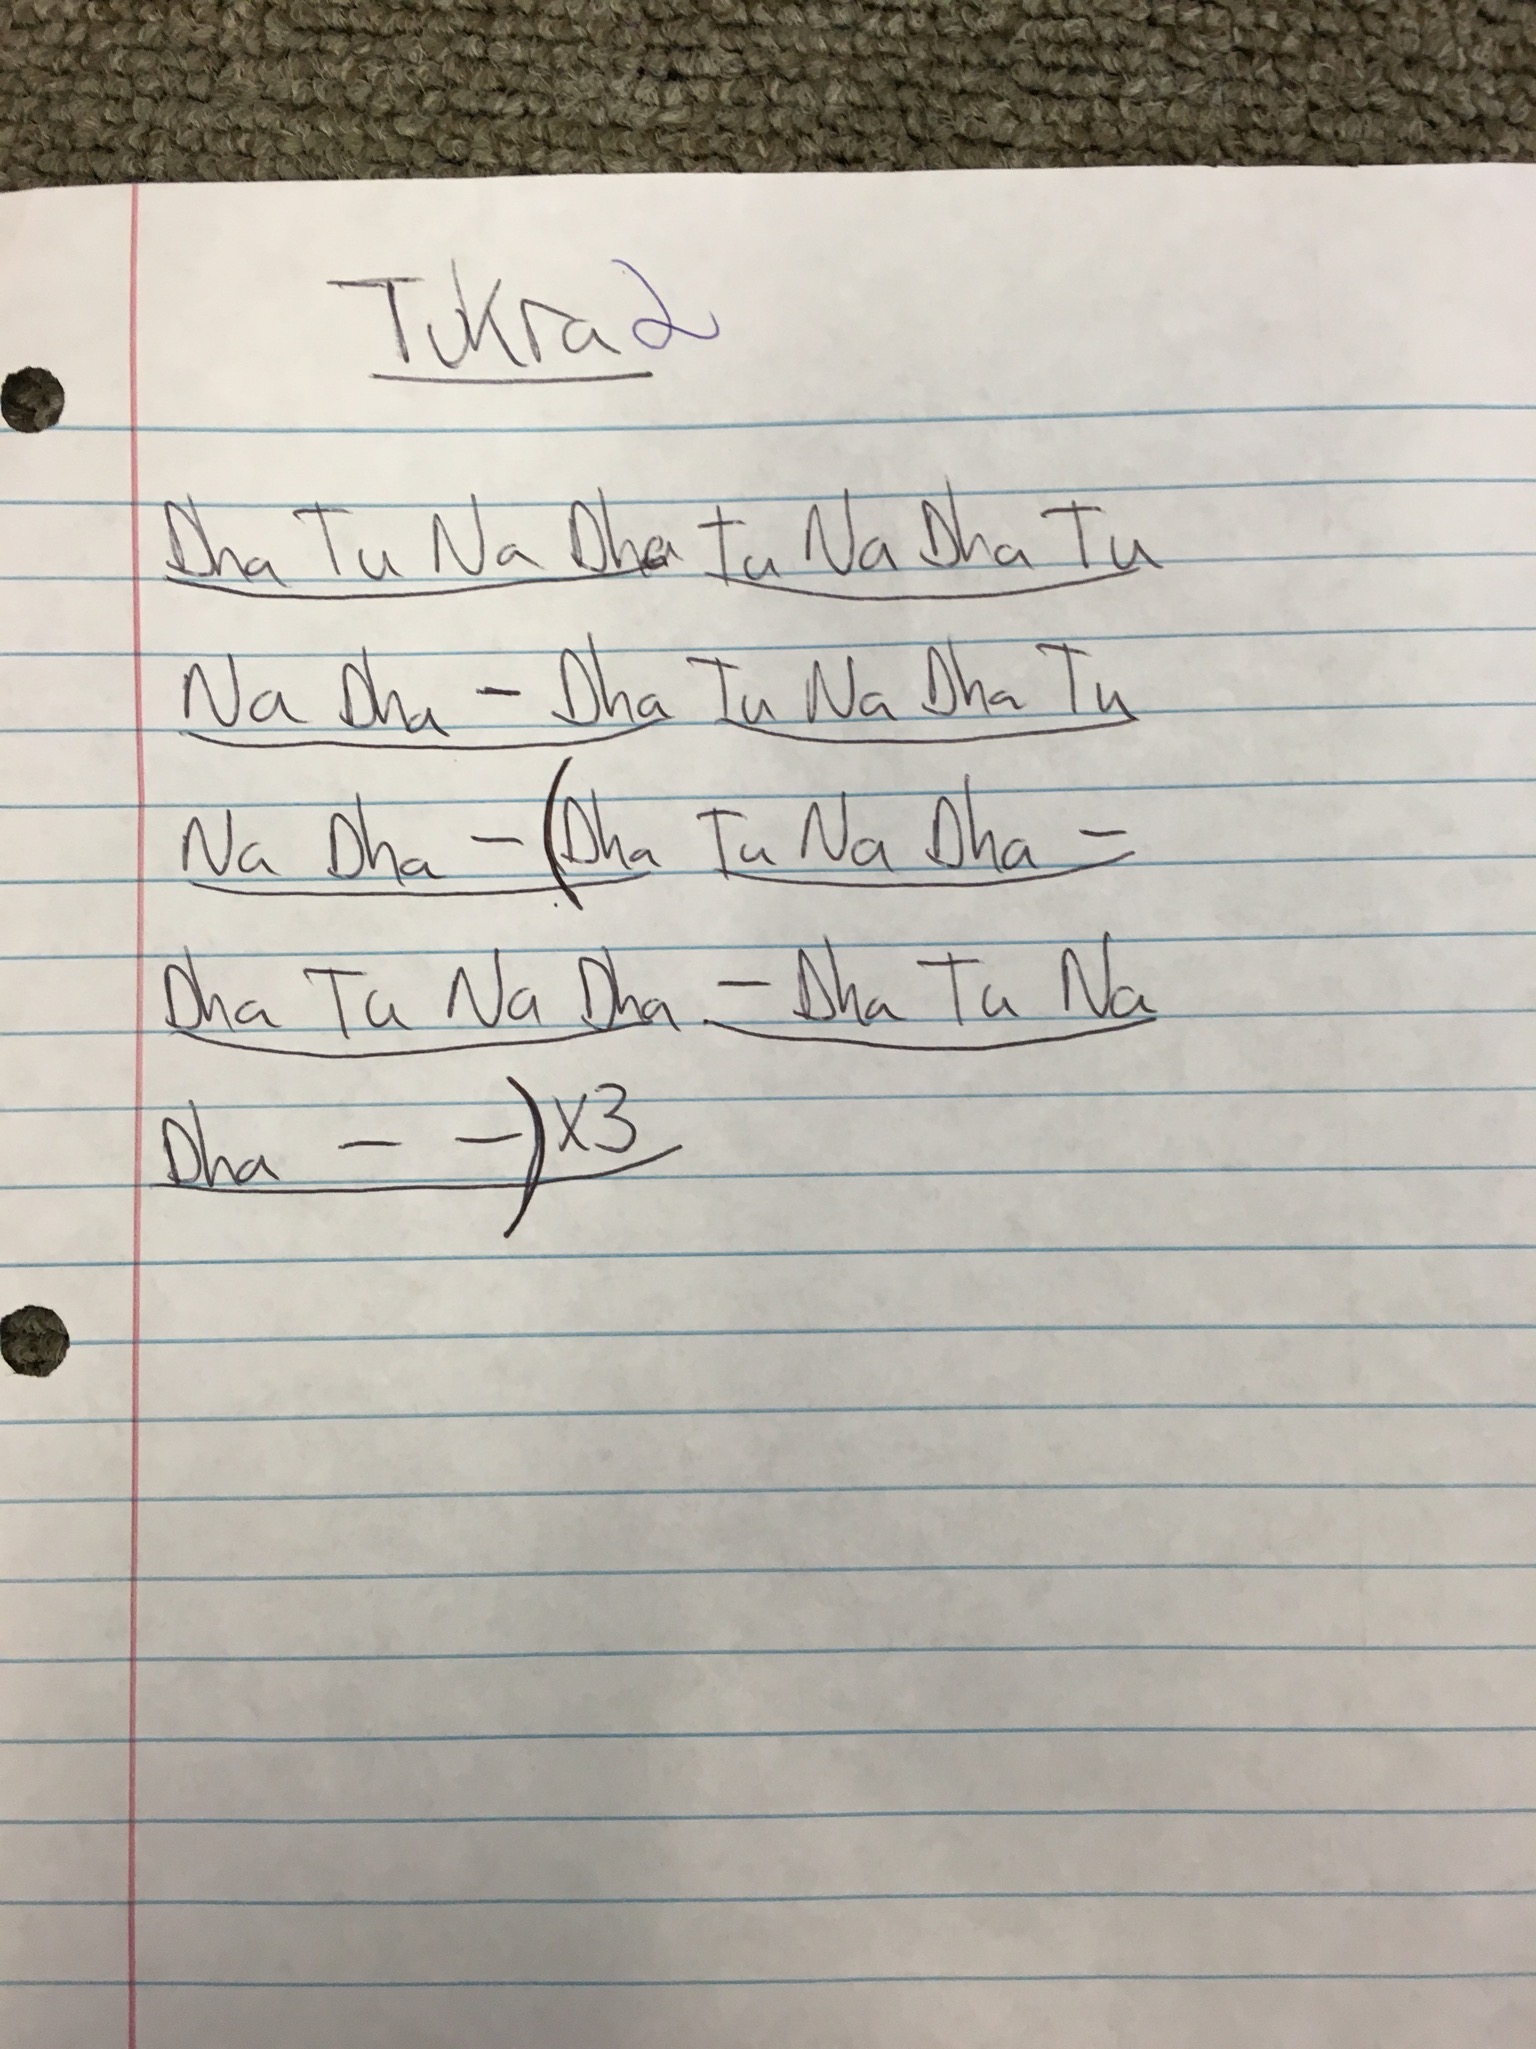 Tukra 2
Dha Tu Na Dha Tu Na Dha Tu
Na Dha - Dha Tu Na Dha Tu
Na Dha - (Dha Tu Na Dha -
Dha Tu Na Dha - Dha Tu Na
Dha - -) x3